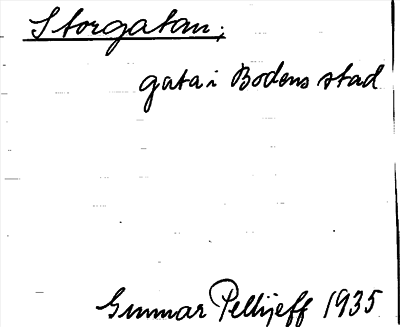 Storgatan;
gata i Bodens stad
Gunnar Pellijeff 1935